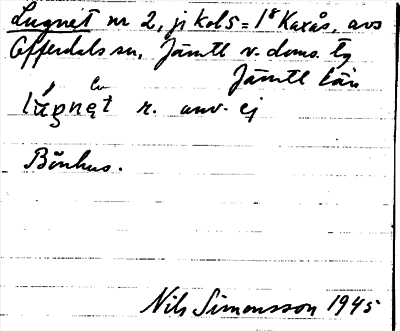 Lugnet nr 2, ji kol 5 = 1⁸ Kaxås, avs
Offerdals sn, Jämtl v. doms. tg
Jämtl län
lúgnet r. anv. ej
Bönhus.
Nils Simonsson 1945